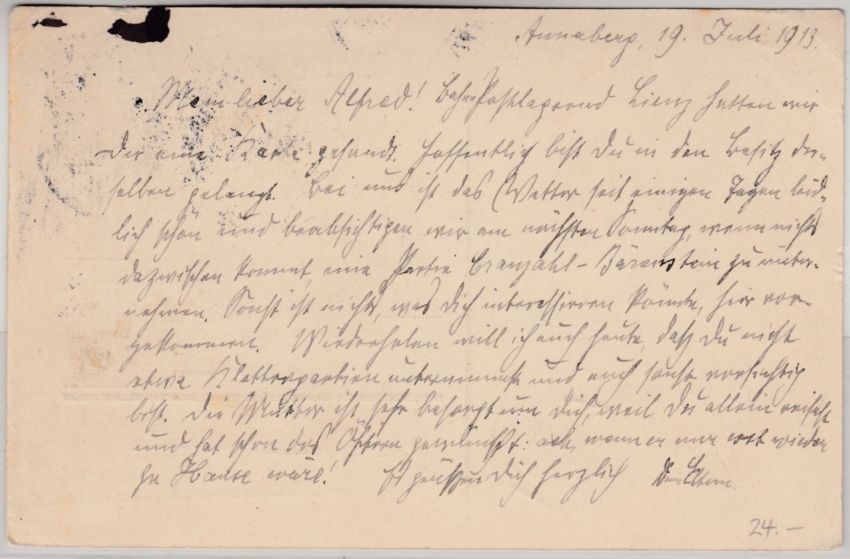 Annaberg, 19. Juli 1913.
Mein lieber Alfred! Postlagernd Lienz hatten wir
Dir eine Karte gesandt. Hoffentlich bist Du in den Besitz der-
selben gelangt. Bei uns ist das Wetter seit einigen Tagen leid-
lich schön und beabsichtigen wir am nächsten Sonntag, wenn nichts
dazwischen kommt, eine Partie Cranzahl-Bärenstein zu unter-
nehmen. Sonst ist nichts, was Dich interessieren könnte, hier vor-
gekommen. Wiederholen will ich auch heute, daß Du nicht
etwa Kletterpartien unternimmst und auch sonst vorsichtig
bist. Die Mutter ist sehr besorgt um Dich, weil Du allein reisest
und hat schon des Öftern gewünscht: ach, wenn er nur erst wieder
zu Hause wäre! Es grüßen Dich herzlich Deine Eltern.
24.-